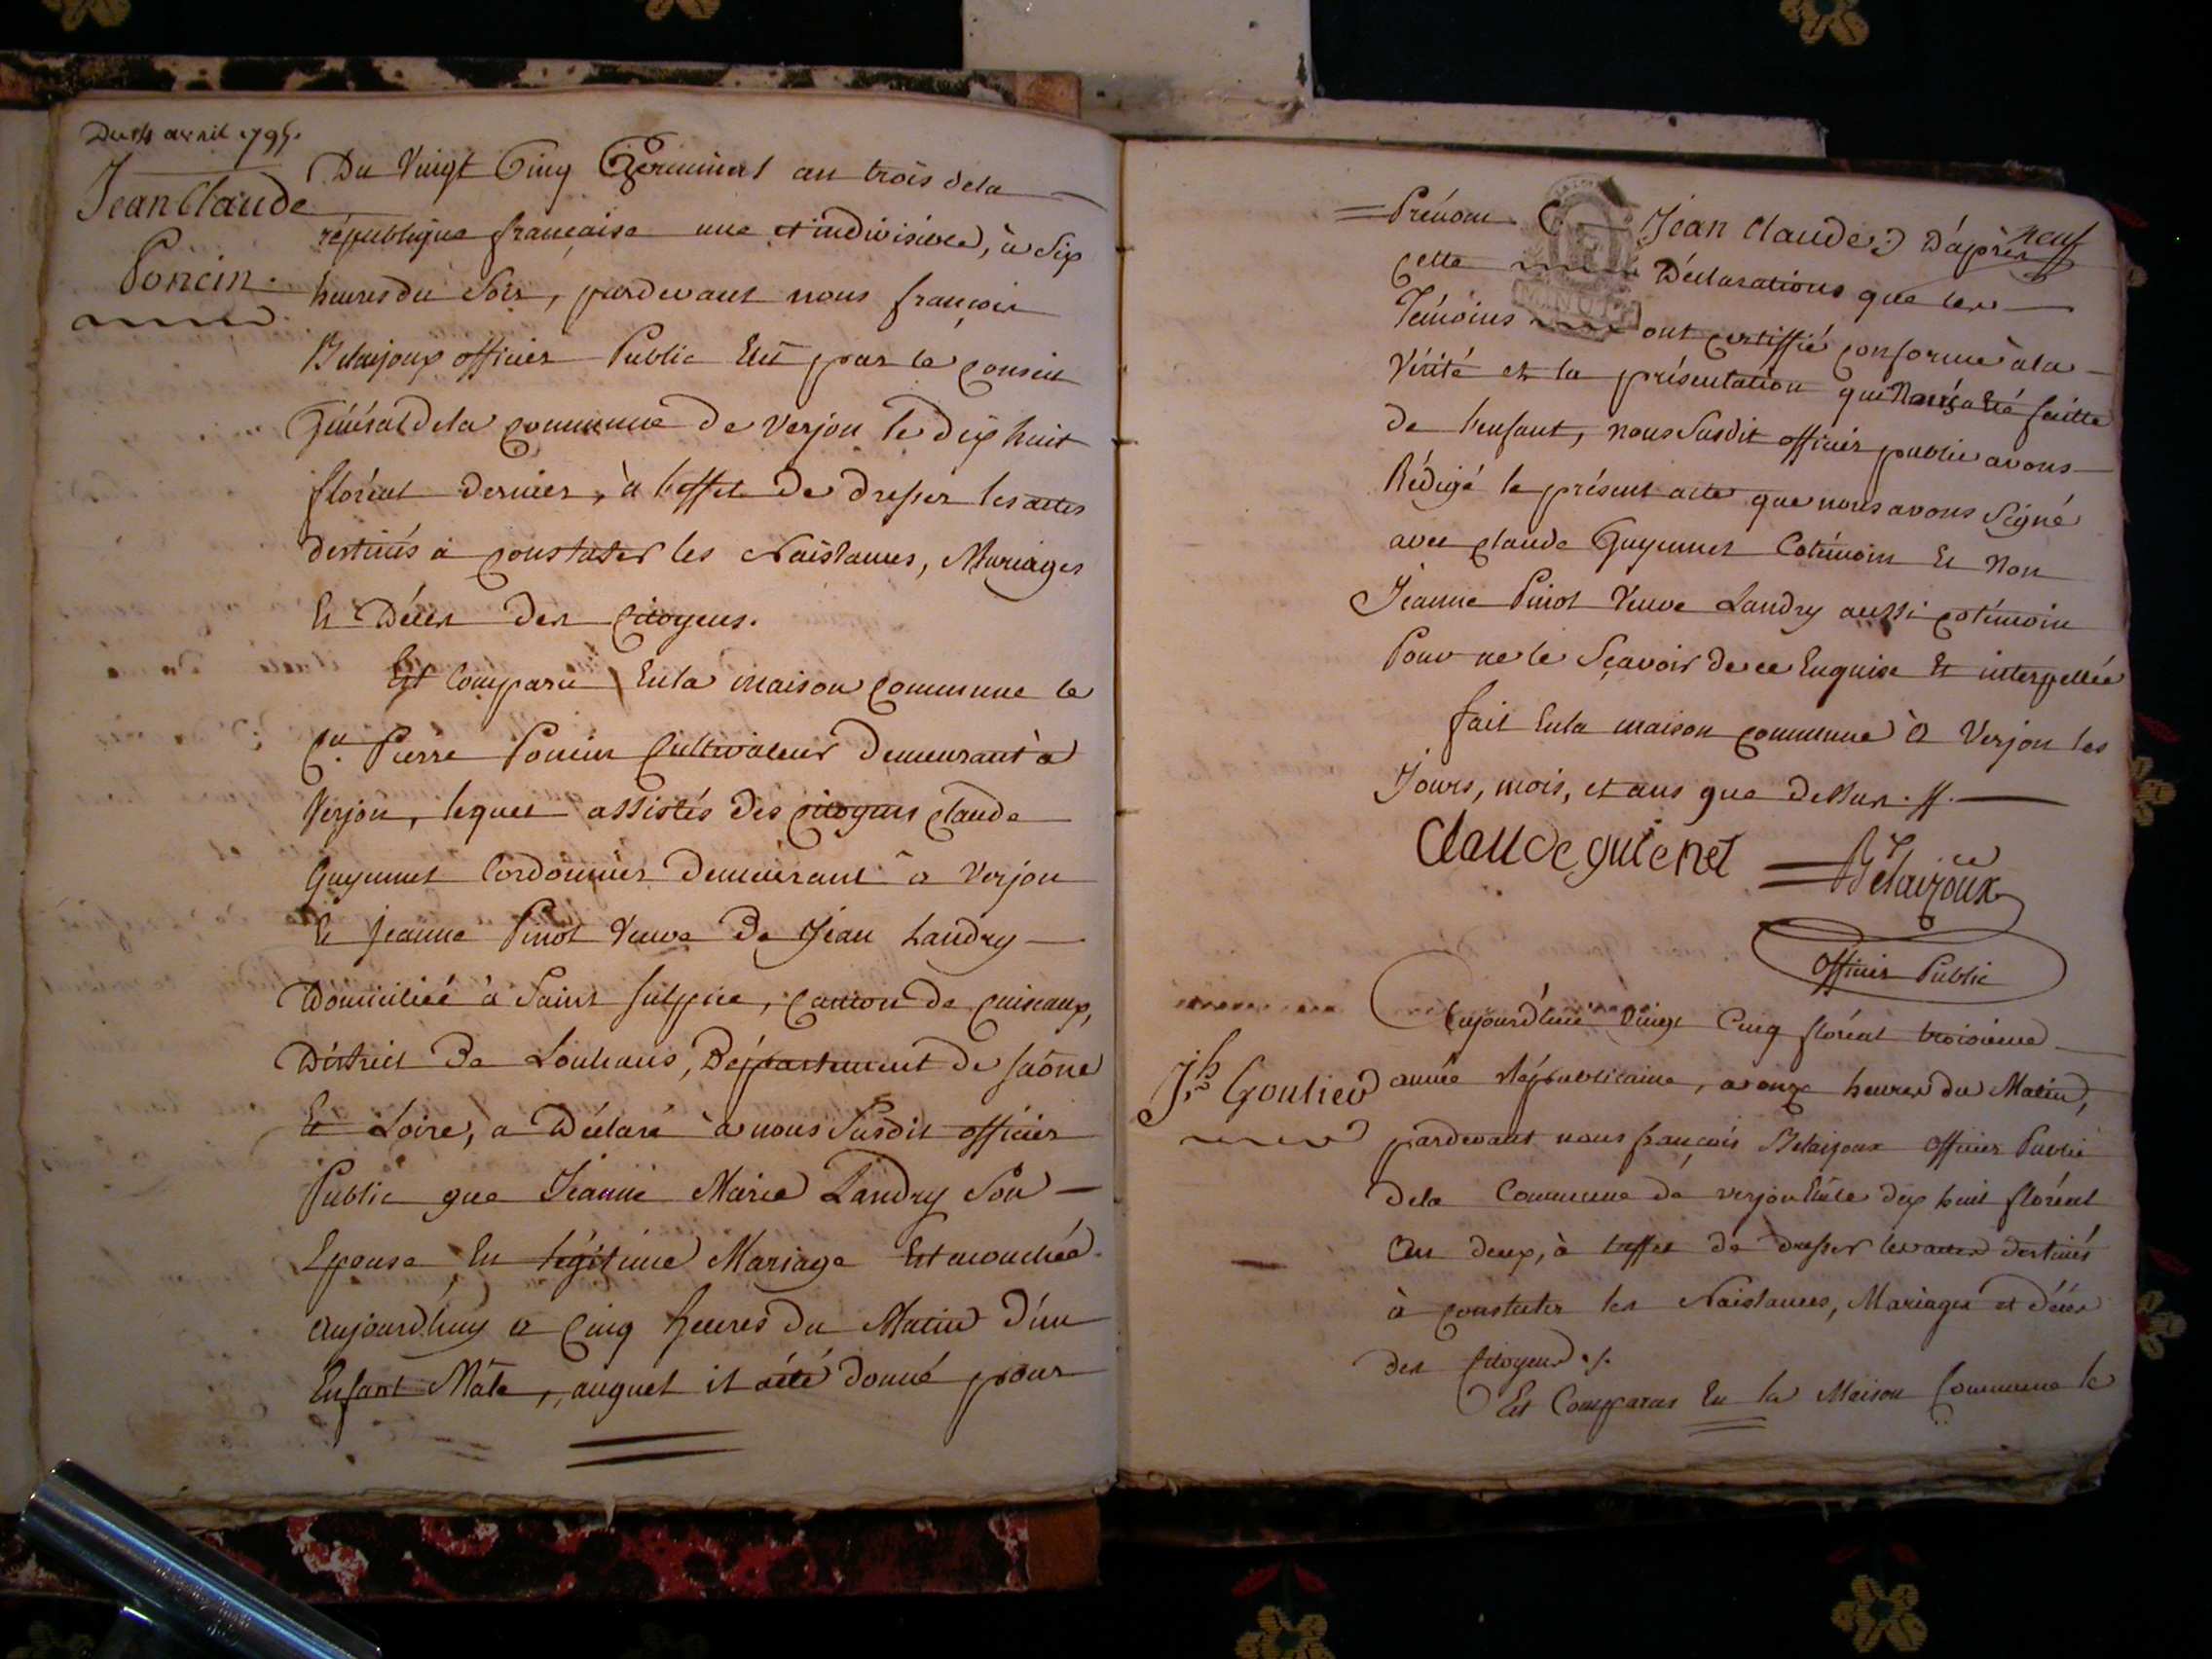 Du 14 avril 1795.
Jean Claude
Poncin.
Du Vingt Cinq Germinal an trois dela
république française une et indivisible, à Six
heures du Soir, pardevant nous françois
Bélaijoux officier Public Elû par le Conseil
Général dela commune de Verjon le dix huit
floréal dernier, à l'effet de dresser les actes
destinés à constater les Naissances, Mariages
Et Décès des Citoyens.
Est Comparu En la maison commune le
Cn. Pierre Poncin Cultivateur demeurant à
Verjon, lequel assistés des citoyens Claude
Guyennet Cordonnier demeurant à Verjon
Et Jeanne Pinot Veuve De Jean Landry
domiciliée à Saint Sulpice, canton de Cuiseaux,
District De Louhans, Département de Saône
Et Loire, a Déclaré à nous Susdit officier
Public que Jeanne Marie Landry Son
Epouse En légitime Mariage Est accouchée
aujourd'huy à Cinq heures du Matin d'un
Enfant Mâle, auquel il a été donné pour
neuf
Prénom Jean Claude; D'après
Cette Déclarations que les
Témoins ont certiffié conforme à la
Vérité et la présentation qui Nous a été faitte
de l'enfant, nous Susdit officier public avons
Rédigé le présent acte que nous avons Signé
avec Claude Guyennet Cotémoin Et Non
Jeanne Pinot Veuve Landry aussi cotémoin
Pour ne le Sçavoir de ce Enquise Et interpellée
fait En la maison commune à Verjon les
Jours, mois, et ans que dessus.
Claude guienet Bélaijoux
Officier Public
Jh Goulier
Aujourd'hui Vingt Cinq floréal troisième
année Républicaine, à onze heures du Matin,
pardevant nous françois Bélaijoux Officier Public
dela Commune de verjon Elû le dix huit floréal
an deux, à l'effet de dresser les actes destinés
à constater les Naissances, Mariages et décès
des Citoyens ./.
Est Comparus En la Maison Commune le